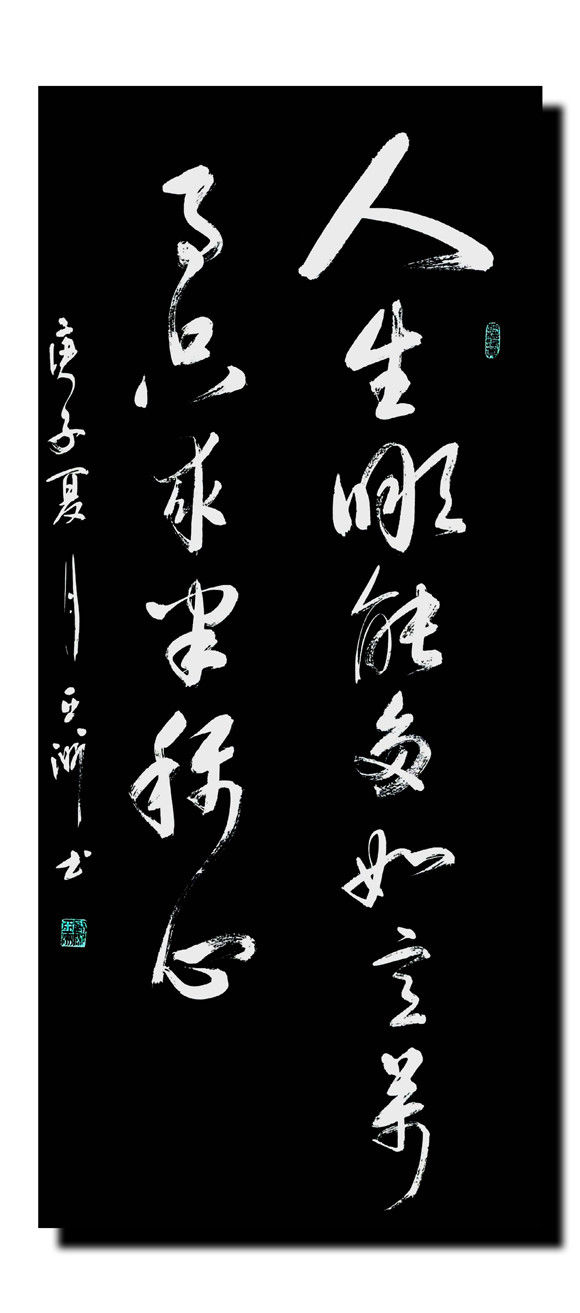 人生哪能多如意萬
事只求半稱心
庚子夏月亚书